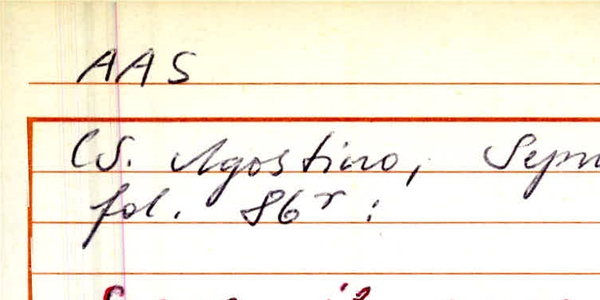 AAS
(S. Agostino, Sepu
fol. 86r: